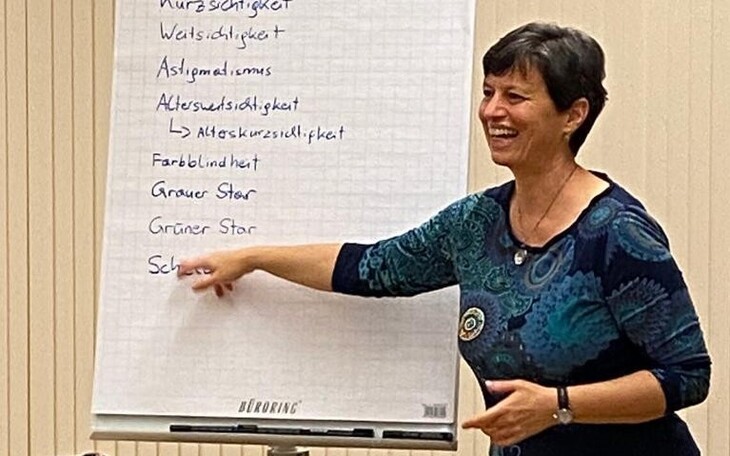 Kurzsichtigkeit
Weitsichtigkeit
Astigmatismus
Altersweitsichtigkeit
↳ Alterskurzsichtigkeit
Farbblindheit
Grauer Star
Grüner Star
BÜRORING